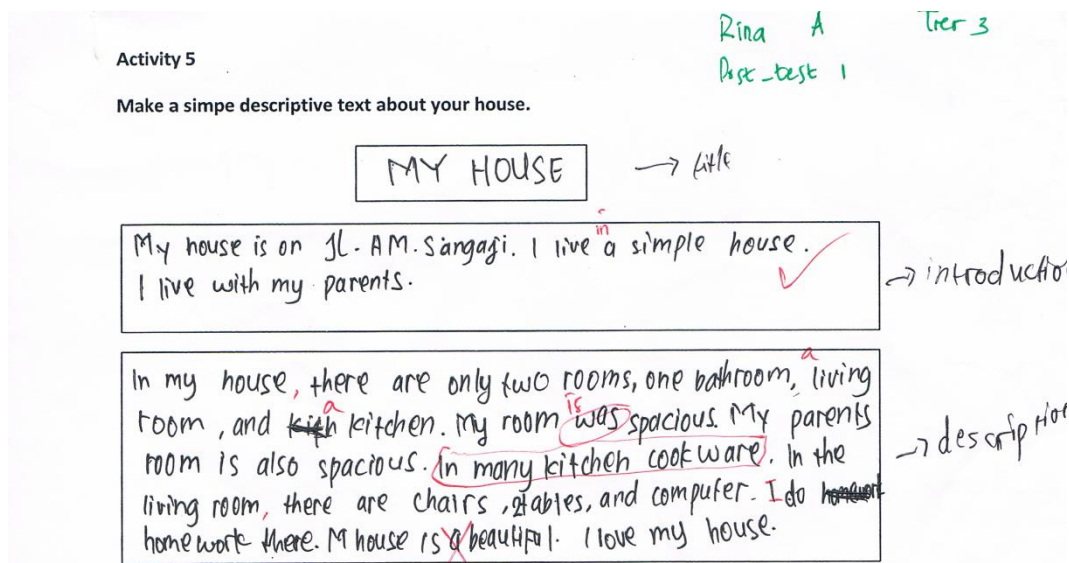 Rina A Tier 3
Post-test 1
Activity 5
Make a simpe descriptive text about your house.
MY HOUSE → title
in
My house is on Jl. AM. Sangaji. I live a simple house.
I live with my parents.
→ introduction
a
In my house, there are only two rooms, one bathroom, living
a is
room, and kitchen. My room was spacious. My parents
room is also spacious. In many kitchen cookware. In the
→ description
living room, there are chairs, tables, and computer. I do
homework there. M house is a beautiful. I love my house.